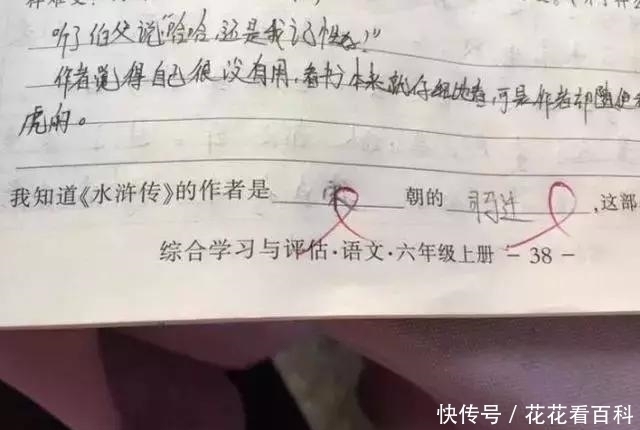 听了伯父说“哈哈,还是我记性好!”
作者觉得自己很没有用,看书本来就仔细地看,可是作者却随便
虎的。
我知道《水浒传》的作者是 宋 朝的 司马迁 ,这部
综合学习与评估·语文·六年级上册 - 38 -
快传号 / 花花看百科